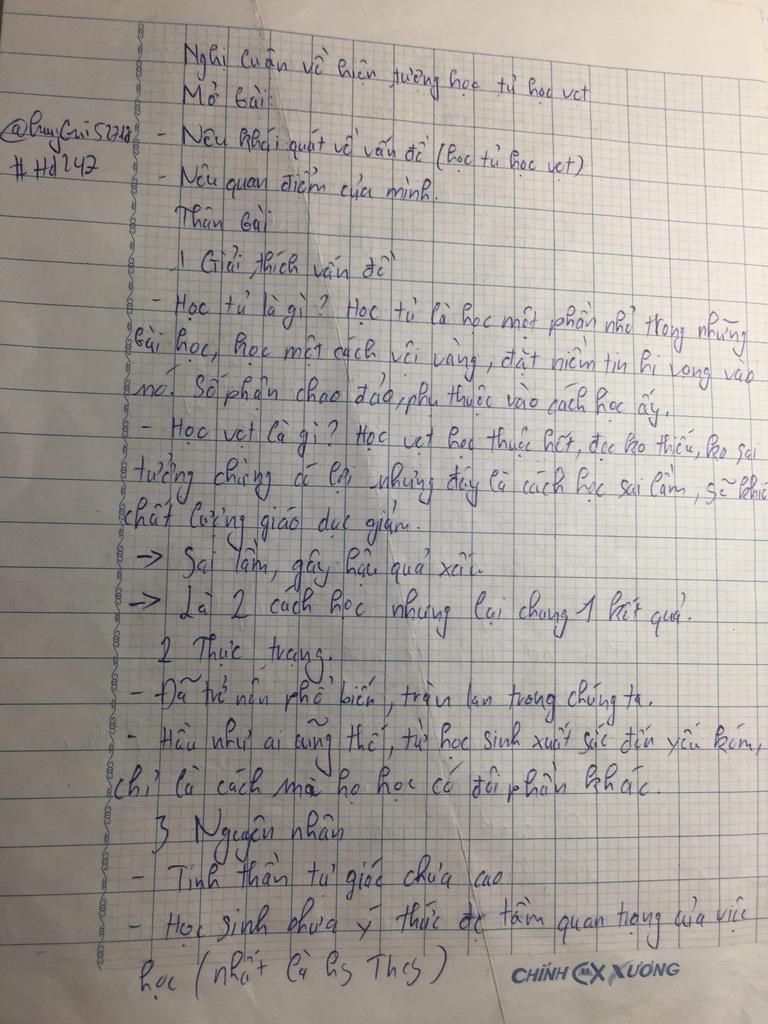 Nghị luận về hiện tượng học tủ học vẹt
Mở bài
- Nêu khái quát về vấn đề (học tủ học vẹt)
#Hd247
- Nêu quan điểm của mình.
Thân bài
1 Giải thích vấn đề
- Học tủ là gì? Học tủ là học một phần nhỏ trong những
bài học, học một cách vội vàng, đặt niềm tin hi vọng vào
nó. Số phận chao đảo, phụ thuộc vào cách học ấy.
- Học vẹt là gì? Học vẹt học thuộc hết, đọc ko thiếu, ko sai
tưởng chừng có lợi nhưng đây là cách học sai lầm, sẽ khiế
chất lượng giáo dục giảm.
→ Sai lầm, gây hậu quả xấu.
→ Là 2 cách học nhưng lại chung 1 kết quả.
2 Thực trạng.
- Đã trở nên phổ biến, tràn lan trong chúng ta.
- Hầu như ai cũng thế, từ học sinh xuất sắc đến yếu kém,
chỉ là cách mà họ học có đôi phần khác.
3 Nguyên nhân
- Tinh thần tự giác chưa cao
- Học sinh chưa ý thức đc tầm quan trọng của việc
học (nhất là hs Thcs)
CHÍNH CX XƯƠNG